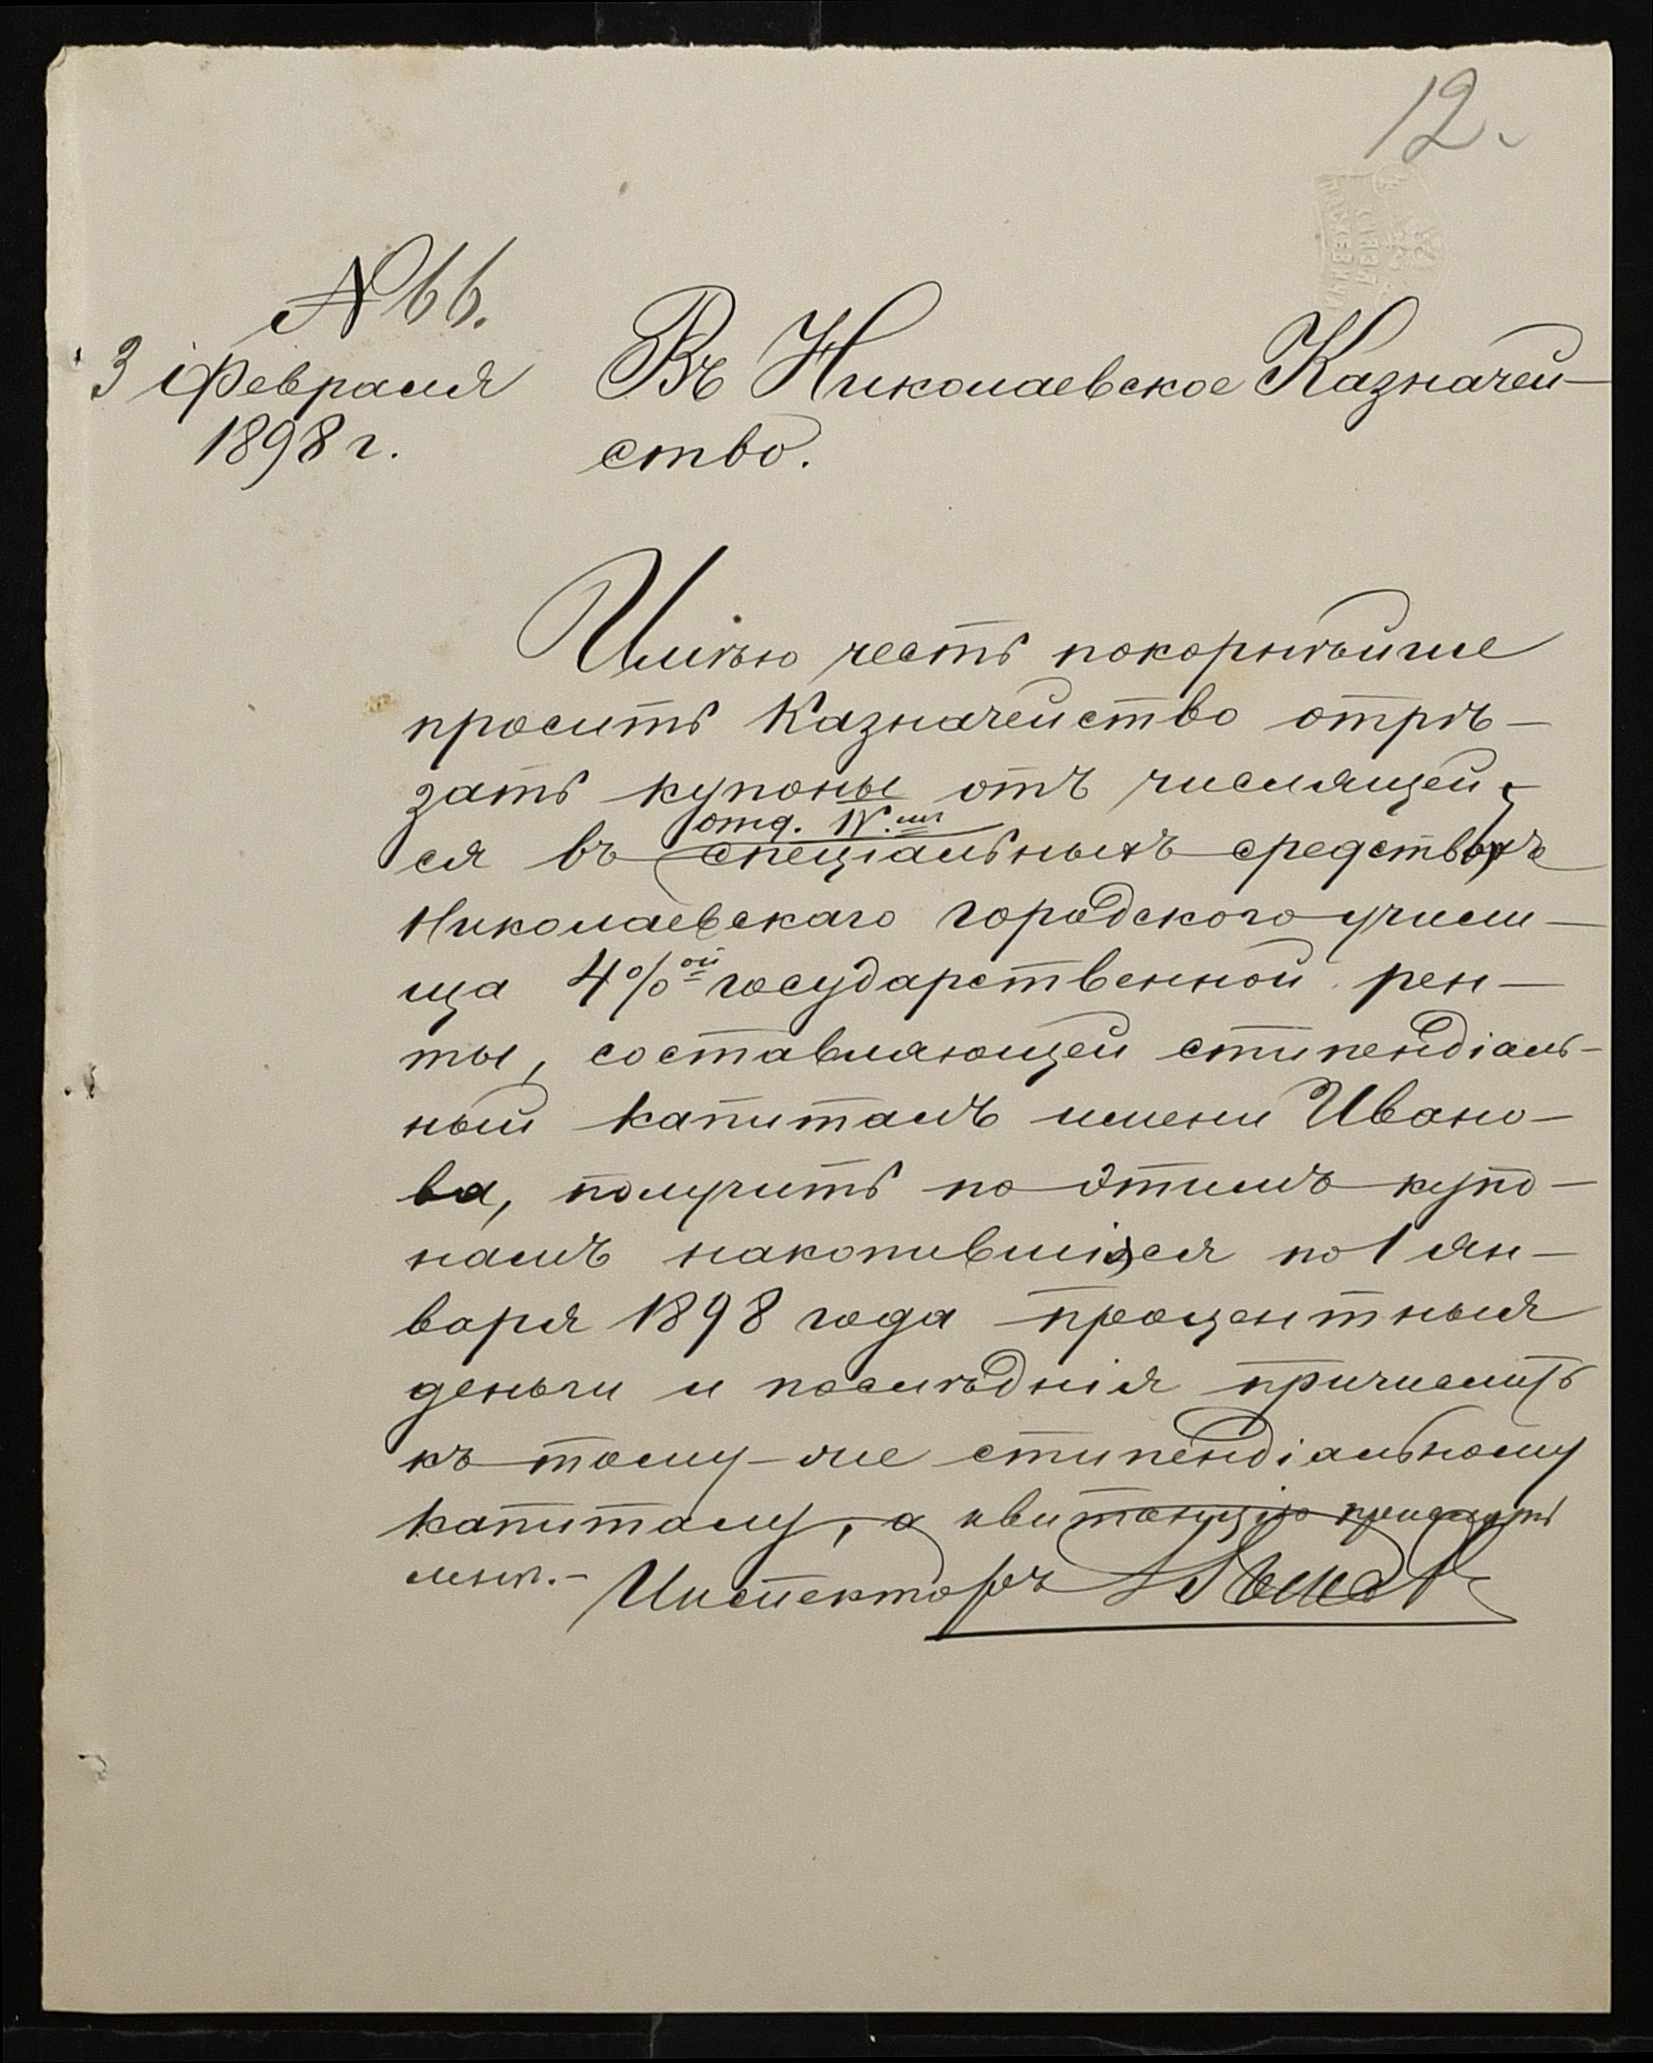 12.
№ 66.
3 Февраля
1898 г.
Въ Николаевское Казначей-
ство.
Имѣю честь покорнѣйше
просить Казначейство отрѣ-
зать купоны отъ числящей-
отд. IV.
ся въ спеціальныхъ средствахъ
Николаевскаго городского учили-
ща 4%ой государственной рен-
ты, составляющей стипендіаль-
ный капиталъ имени Ивано-
ва, получить по этимъ купо-
намъ накопившіяся по 1 ян-
варя 1898 года процентныя
деньги и послѣднія причислить
къ тому-же стипендіальному
капиталу, а квитанцію прислать
мнѣ.- Инспекторъ